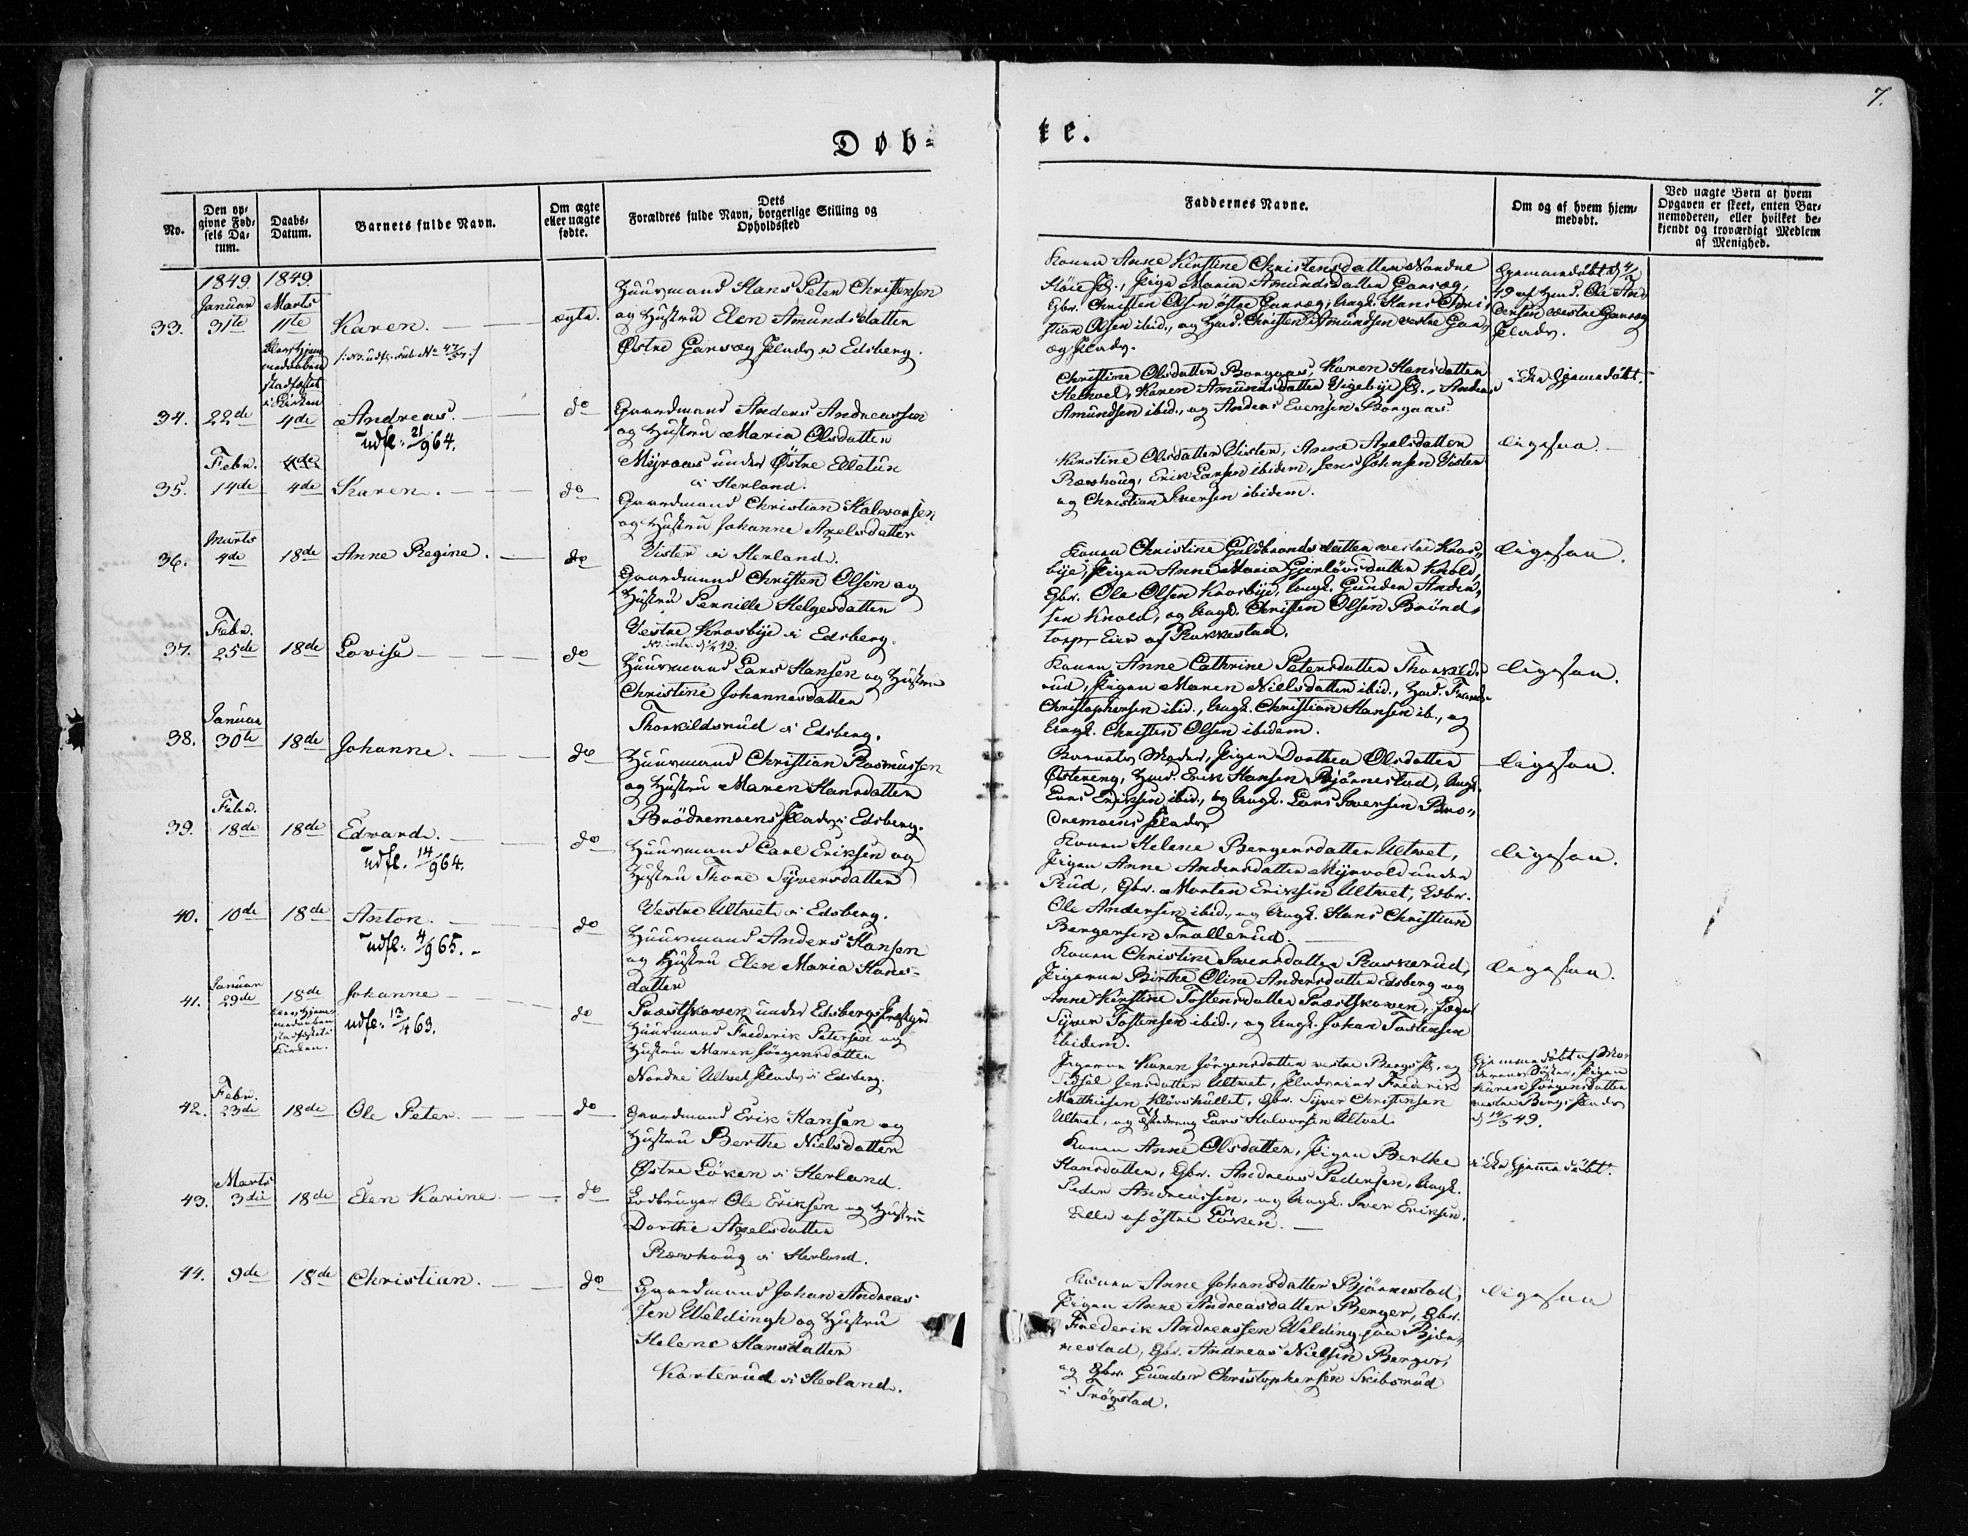 7.
Døb-
te.
No.
Den op-
givne Fød-
sels Da-
tum.
Daabs-
Datum.
Barnets fulde Navn.
Om ægte
eller uægte
fødte.
Dets
Forældres fulde Navn, borgerlige Stilling og
Opholdssted
Faddernes Navne.
Om og af hvem hjem-
medøbt.
Ved uægte Børn af hvem
Opgaven er skeet, enten Bar-
nemoderen, eller hvilket be-
kjendt og troværdigt Medlem
af Menighed.
1849 1849
33. Januar 31te Marts 11te Karen. ægte.
Huusmand Hans Peter Christensen
og Hustru Elen Amundsdatten
Østre Garseg Plads i Edsberg.
Konen Anne Kirstine Christensdatten Nordre
Pige Maria Amundsdatten Garseg,
Gbr. Christen Olsen østre Garseg, Ungk. Hans Chri-
stian Olsen ibid., og Christen Amundsen vestre
Plads.
Hjemmedøbt
49 af Huusm. Ole An-
dersen vestre Garseg
Plads.
34. 22de 4de Andreas. do
udfl. 21/9 64.
Gaardmand Anders Andreassen
og Hustru Maria Olsdatten
Myraas under Østre Elletun
i Herland.
Christine Olsdatten Borgaas, Karen Hansdatten
Karen Amundsdatten Vigebye Andreas
Amundsen ibid., og Anders Evensen Borgaas.
ikke hjemmedøbt.
35. Febr. 14de 4de Karen. do
Gaardmand Christian Halvorsen
og Hustru Johanne Axelsdatter
Vister i Herland.
Kirstine Olsdatten Vister, Anne Axelsdatten
Ræshoug, Erik Larsen ibidem, Jens Johnsen Vister
og Christian Iversen ibidem.
ligesaa
36. Marts 4de 18de Anne Regine. do
Gaardmand Christen Olsen og
Hustru Pernille Helgesdatten
Vestre Krosbye i Edsberg.
Konen Christine Guldbrandsdatten vestre Kros-
bye, Pigen Anne Maria Gjerløvsdatten Knold,
Gbr. Ole Olsen Krosbye, Ungk. Gunder Ander-
sen Knold, og Ungk. Christen Olsen Brønd-
torp Eier af Rakkestad.
ligesaa.
37. Febr. 25de 18de Lovise do
Huusmand Lars Hansen og Hustru
Christine Johannesdatten
Thorkildsrud i Edsberg.
Konen Anne Cathrine Petersdatten Thorkilds-
rud, Pigen Maren Nielsdatten ibid.,
Christophersen ibid., Ungk. Christian Hansen ib., og
Ungk. Christen Olsen ibidem.
ligesaa.
38. Januar 30te 18de Johanne. do
Huusmand Christian Rasmussen
og Hustru Maren Hansdatten
Brødremoens Plads i Edsberg.
Barnets Moder, Pigen Dorthea Olsdatten
Østereng, Erik Hansen Bjørnestad, Ungk.
Lars Eriksen ibid., og Ungk. Lars Iversen Brø-
dremoens Plads.
ligesaa.
39. Febr. 18de 18de Edvard. do
udfl. 14/9 64.
Huusmand Carl Eriksen og
Hustru Thore Syversdatten
Vestre Ultvet i Edsberg.
Konen Helene Bergersdatten Ultvet,
Pigen Anne Andersdatten Myrvold under
Rud, Gbr. Morten Eriksen Ultvet,
Ole Andersen ibid., og Ungk. Hans Christian
Bergersen Trollerud.
ligesaa.
40. 10de 18de Anton. do
udfl. 4/9 65.
Huusmand Anders Hansen
og Hustru Elen Maria Hans-
datten
Præstskoven under Edsbergs Præstgrd
Konen Christine Iversdatten Raskerud,
Pigerne Birthe Oline Andersdatten Edsberg og
Anne Kirstine Tostensdatten Præstskoven,
Syver Tostensen ibid., og Ungk. Johan Tostensen
ibidem.
ligesaa.
41. Januar 29de 18de Johanne do
udfl. 13/4 63.
Huusmand Frederik Petersen og
Hustru Maren Jørgensdatten
Nordre Ultvet Plads i Edsberg.
Pigerne Karen Jørgensdatten vestre Berg og
Sidsel Jensdatten Ultvet, Pladseier Frederik
Mathiesen Gbr. Syver Christensen
Ultvet, og Lars Halvorsen Ultvet.
Hjemmedøbt af Mo-
derens Søster, Pigen
Karen Jørgensdatten
vestre Berg Plads
49.
42. Febr. 23de 18de Ole Peter. do
Gaardmand Erik Hansen og
Hustru Berthe Nielsdatten
Østre Løken i Herland.
Konen Anne Olsdatten, Pigen Berthe
Hansdatten, Gbr. Andreas Pedersen, Ungk.
Peder Andreassen, og Ungk. Iver Eriksen.
Alle af østre Løken.
ikke hjemmedøbt.
43. Marts 3die 18de Elen Karine do
Jordbruger Ole Eriksen og Hustru
Dorthe Axelsdatten
Ræshoug i Herland.
44. 9de 18de Christian. do
Gaardmand Johan Andreas-
sen Weldingh og Hustru
Helene Hansdatten
Karterud i Herland.
Konen Anne Johansdatten Bjørnestad,
Pigen Anne Andreasdatten Berger, Gbr.
Frederik Andreassen Welding paa Bjør-
nestad, Gbr. Andreas Nielsen Berger,
og Gbr. Gunder Christophersen Skibsrud
i Trøgstad.
ligesaa